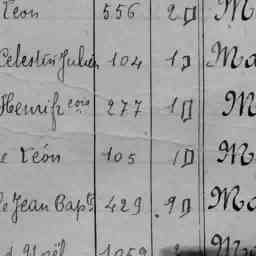 Léon 556 2
Celestin Julien 104 1 Ma
Henri fçois 277 1 M
e Léon 105 1 M
le Jean Bapte 429 9 Ma
Noël 1059